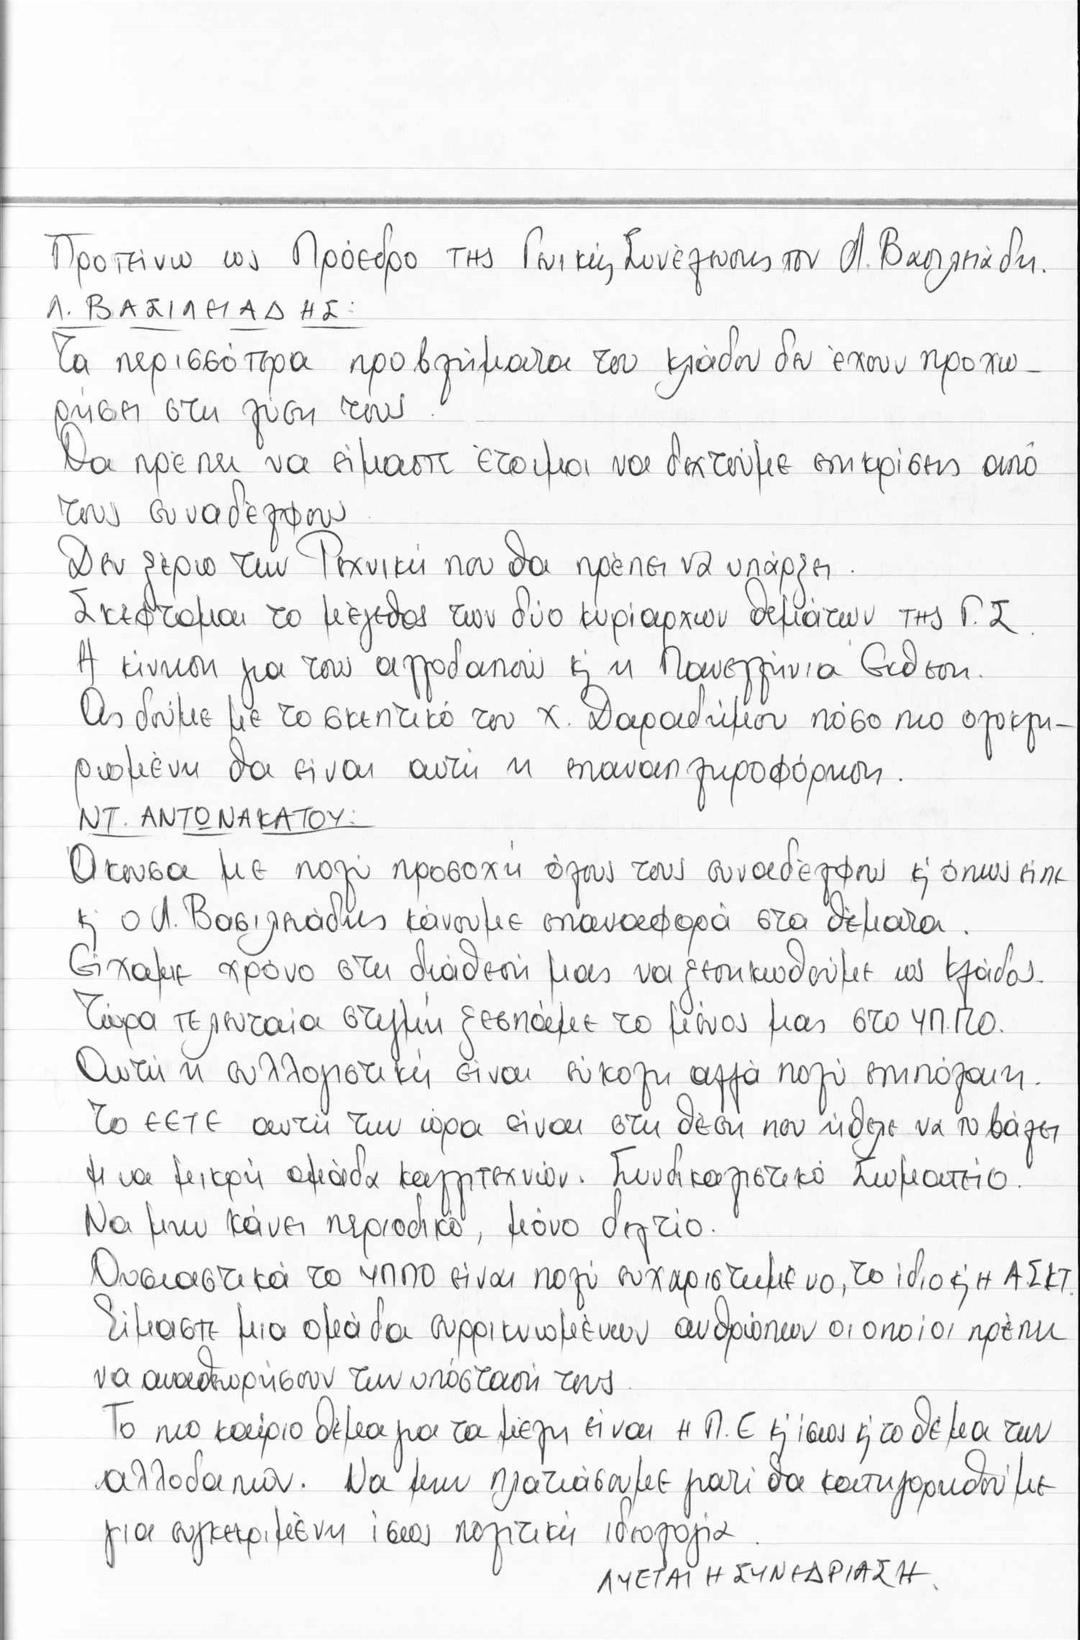 Προτείνω ως Πρόεδρο της Γενικής Συνέλευσης τον Λ. Βασιλειάδη.
Λ. ΒΑΣΙΛΕΙΑΔΗΣ:
Τα περισσότερα προβλήματα του κλάδου δεν έχουν προχω-
ρήσει στη λύση τους.
Θα πρέπει να είμαστε έτοιμοι να δεχτούμε επικρίσεις από
τους συναδέλφους.
Δεν ξέρω την Τεχνική που θα πρέπει να υπάρξει.
Σκέφτομαι το μέγεθος των δύο κυρίαρχων θεμάτων της Γ.Σ.
Η κίνηση για τους αλλοδαπούς κ' η Πανελλήνια Έκθεση.
Ας δούμε με το σκεπτικό του Χ. Δαραδήμου πόσο πιο ολοκλη-
ρωμένη θα είναι αυτή η επαναπληροφόρηση.
ΝΤ. ΑΝΤΩΝΑΚΑΤΟΥ:
Άκουσα με πολύ προσοχή όλους τους συναδέλφους κ' όπως είπε
κ' ο Λ. Βασιλειάδης κάνουμε επαναφορά στα θέματα.
Είχαμε χρόνο στη διάθεσή μας να ξεσηκωθούμε ως Κλάδος.
Τώρα τελευταία στιγμή ξεσπάμε το μένος μας στο ΥΠ.ΠΟ.
Αυτή η συλλογιστική είναι εύκολη αλλά πολύ επιπόλαιη.
Το ΕΕΤΕ αυτή την ώρα είναι στη θέση που ήθελε να το βάλει
μια μικρή ομάδα καλλιτεχνών. Συνδικαλιστικό Σωματείο.
Να μην κάνει περιοδικό, μόνο δελτίο.
Ουσιαστικά το ΥΠΠΟ είναι πολύ ευχαριστημένο, το ίδιο κ' η ΑΣΚΤ.
Είμαστε μια ομάδα συρρικνωμένων ανθρώπων οι οποίοι πρέπει
να αναθεωρήσουν την υπόστασή τους.
Το πιο καίριο θέμα για τα μέλη είναι η Π.Ε κ' ίσως κ' το θέμα των
αλλοδαπών. Να μην πλατιάσουμε γιατί θα κατηγορηθούμε
για συγκεκριμένη ίσως πολιτική ιδεολογία.
ΛΥΕΤΑΙ Η ΣΥΝΕΔΡΙΑΣΗ.